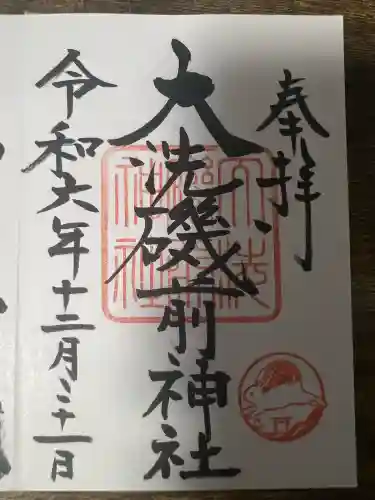 奉拝
大洗磯前神社
令和六年十二月二十一日